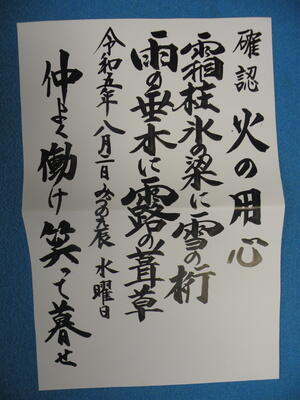 確認 火の用心
霜柱氷の梁に雪の桁
雨の垂木に露の葺草
令和五年 八月二日 みづのえ辰 水曜日
仲よく働け笑って暮せ